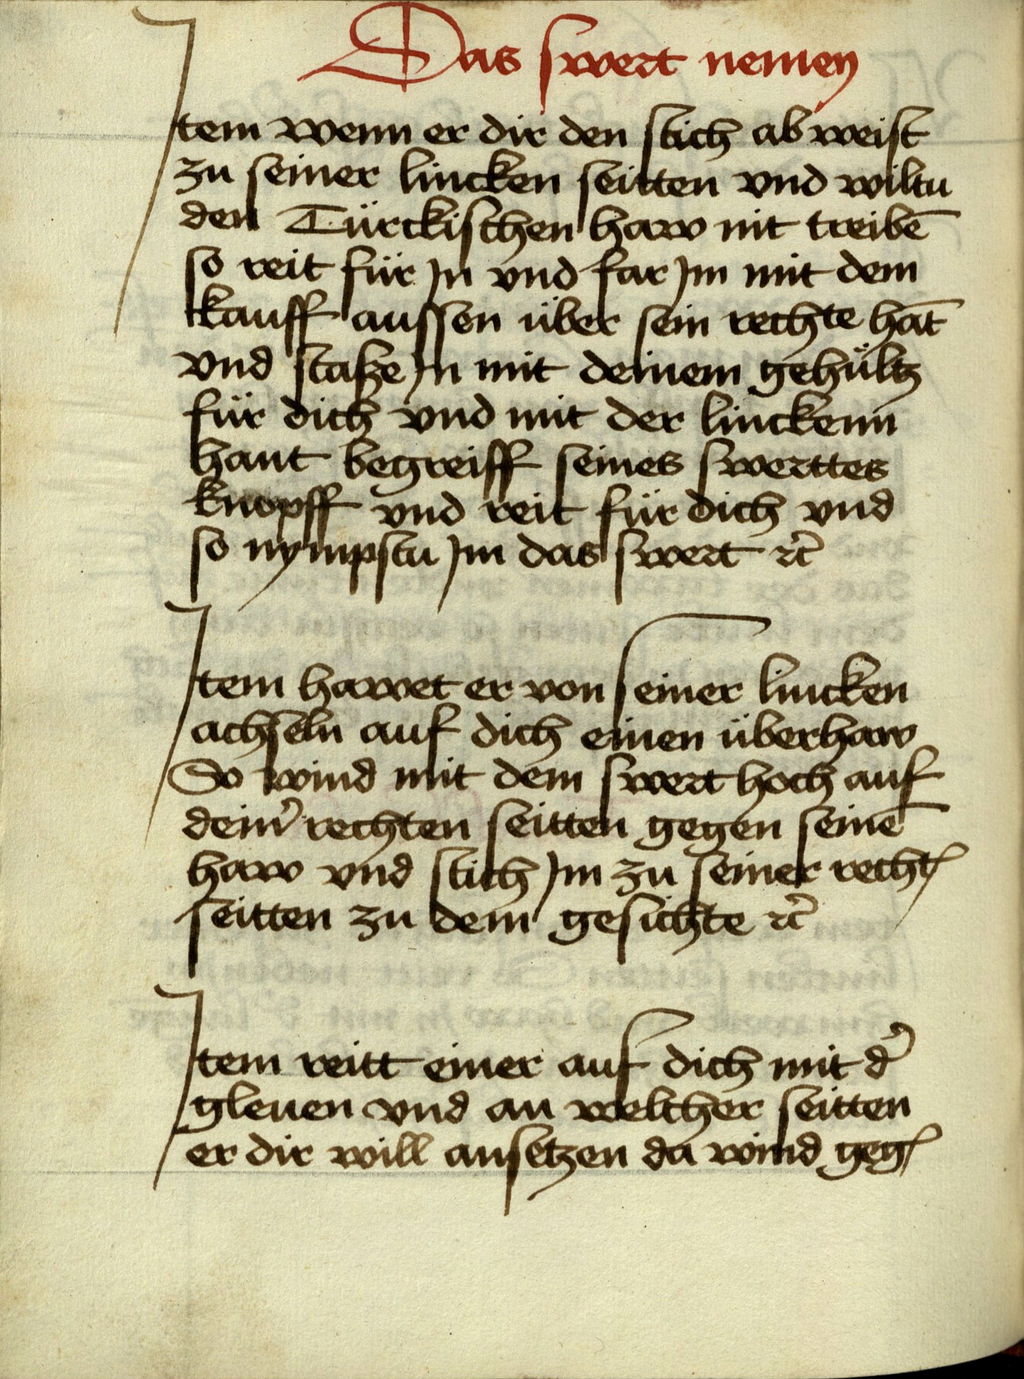 Das swert nemen
Item wenn er dir den stich ab weist
zu seiner lincken seitten vnd wiltu
den Türckischen haw nit treibē
so reit für Jn vnd far Jm mit dem
kauff aussen über sein rechte hāt
vnd stosze Jn mit deinem gehültz
für dich vnd mit der linckenn
hant begreiff seines swerttes
knopff vnd reit für dich vnd
so nympstu Jm das swert ꝛc̄
Item hawet er von seiner lincken
achseln auf dich einen überhaw
So wind mit dem swert hoch auf
dein̾ rechten seitten gegen seinē
haw vnd stich Jm zu seiner rechtꝭ
seitten zu dem gesichte ꝛc̄
Item reitt einer auf dich mit d̾
gleuen vnd an welcher seitten
er dir will ansetzen da wind gegꝭ